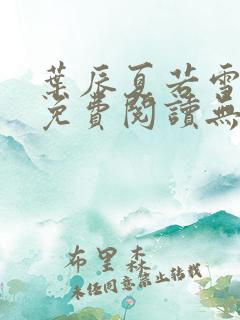 葉辰夏若雪
免費閱讀無
布里森
未经同意禁止转载